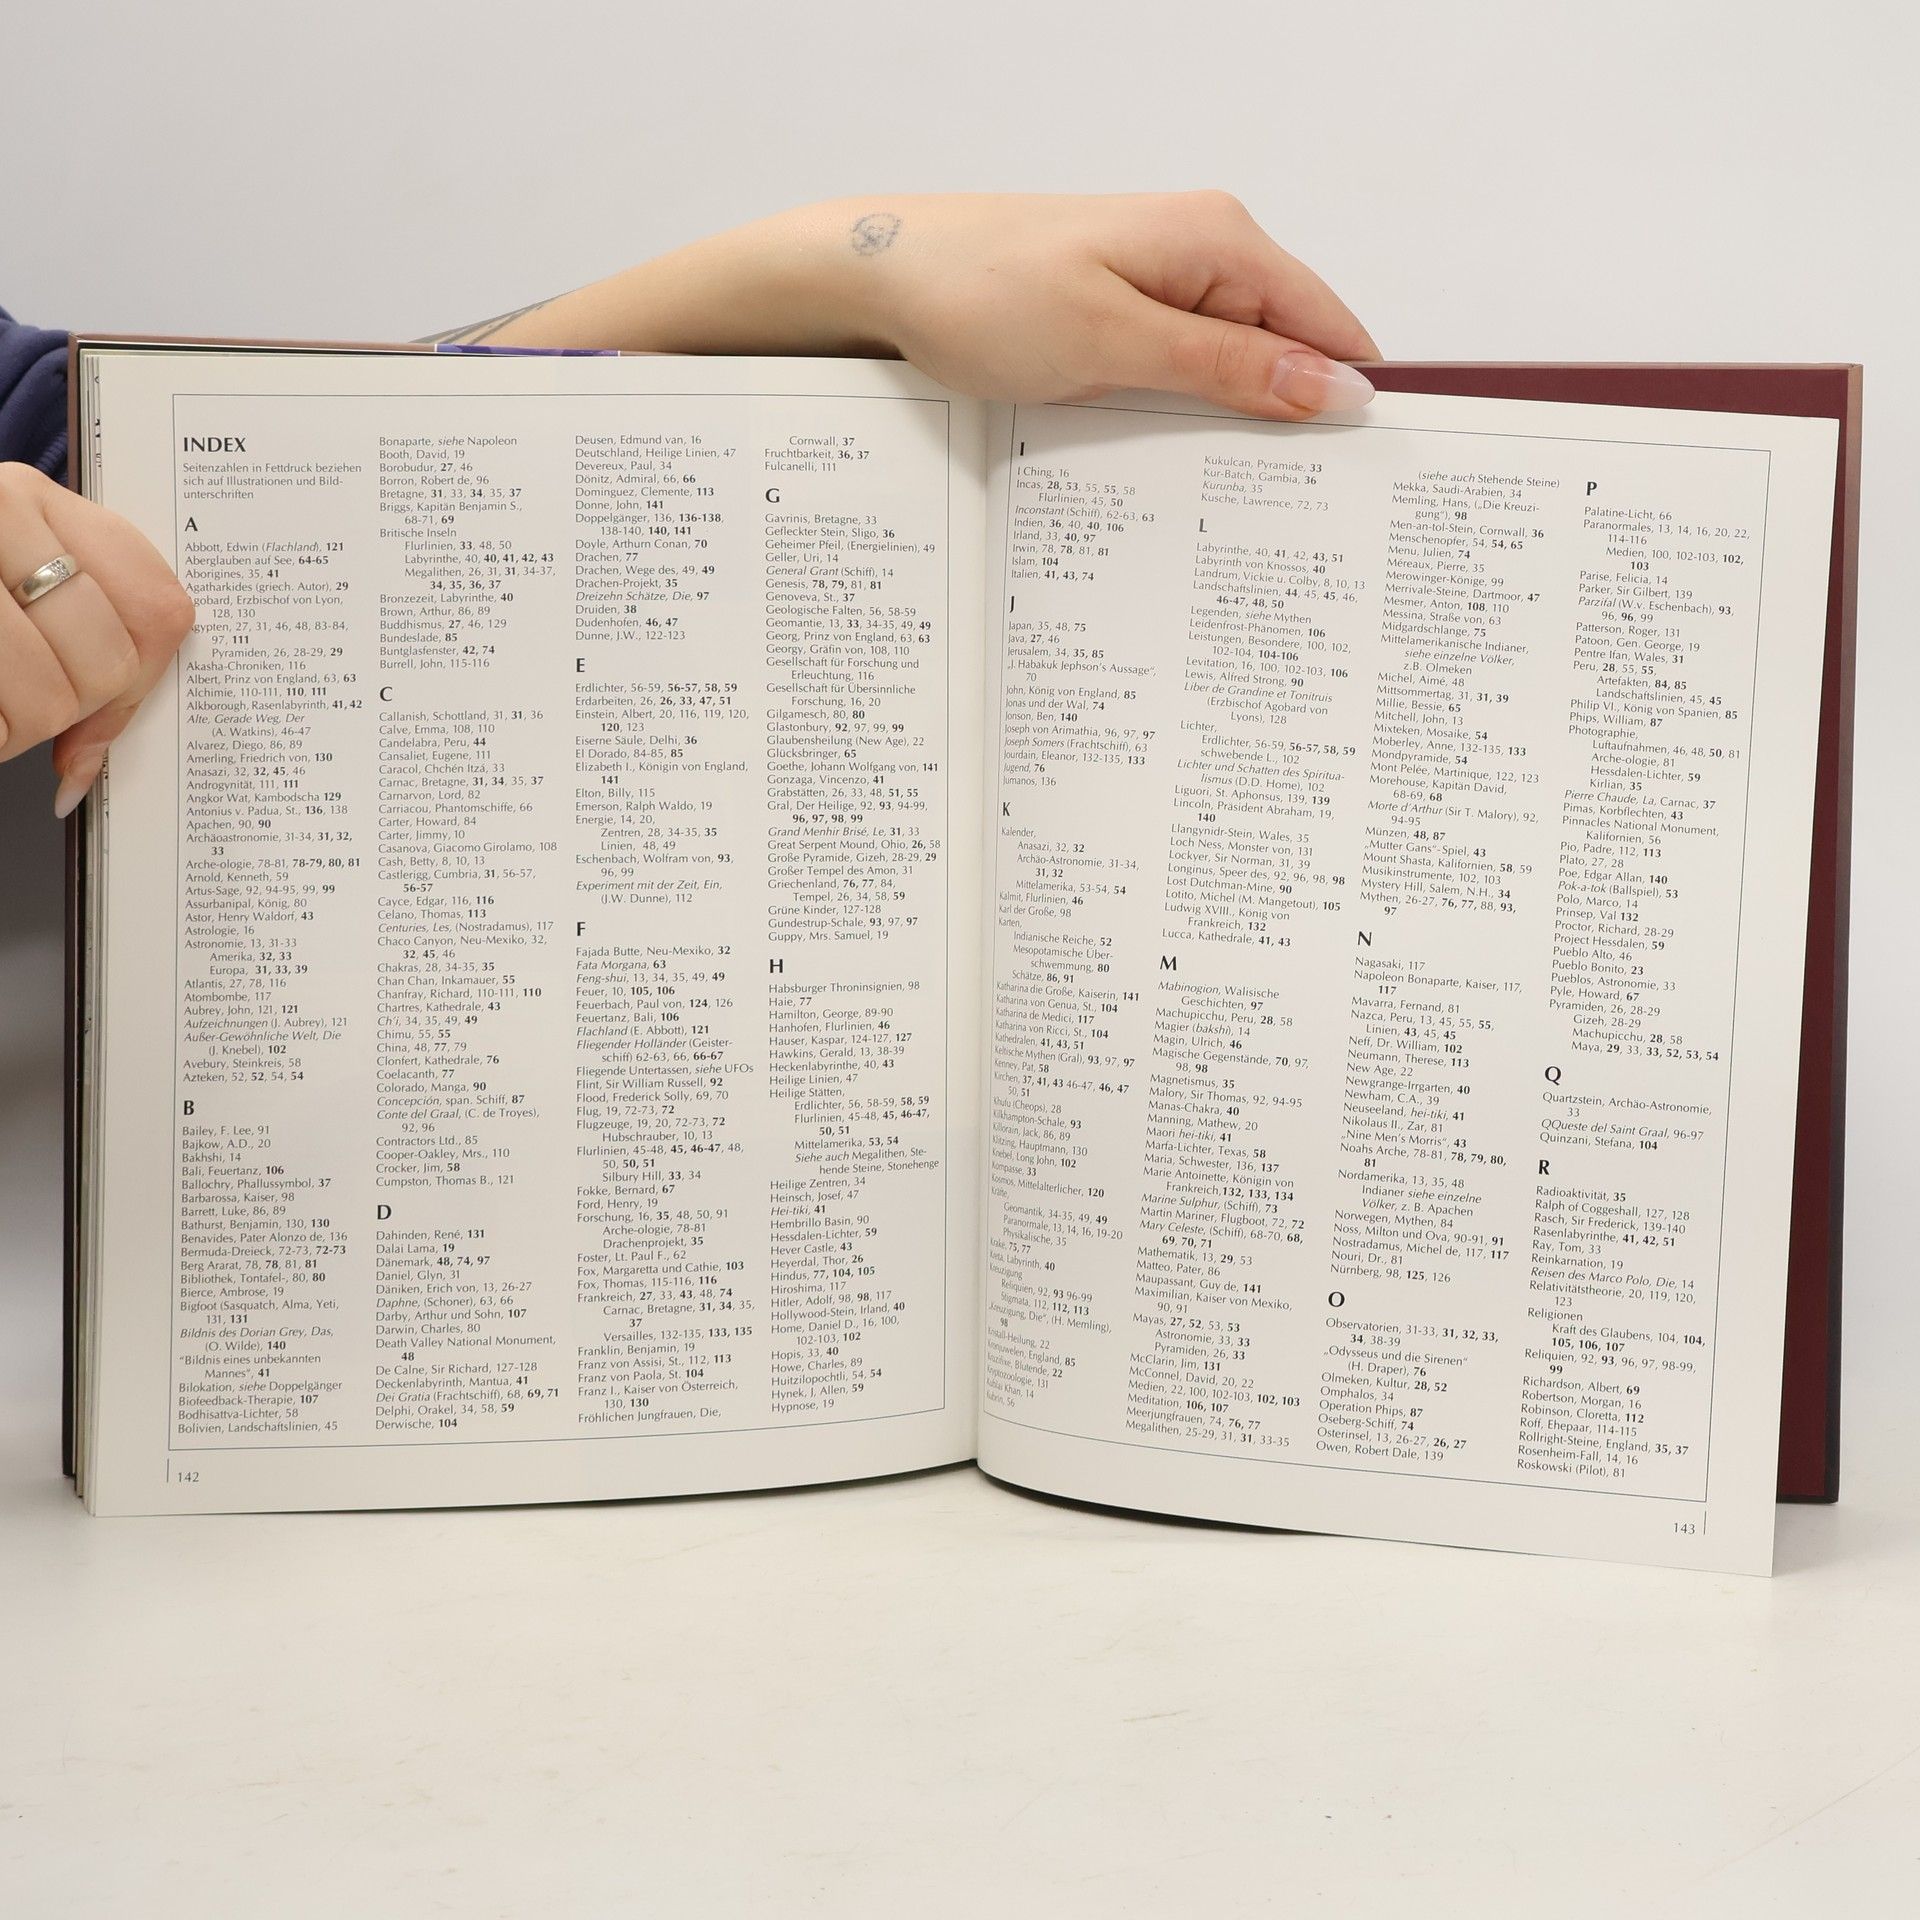 INDEX
Seitenzahlen in Fettdruck beziehen
sich auf Illustrationen und Bild-
unterschriften
A
Abbott, Edwin (Flachland), 121
Aberglauben auf See, 64-65
Aborigines, 35, 41
Agatharkides (griech. Autor), 29
gobard, Erzbischof von Lyon,
128, 130
gypten, 27, 31, 46, 48, 83-84,
97, 111
Pyramiden, 26, 28-29, 29
Akasha-Chroniken, 116
Albert, Prinz von England, 63, 63
Alchimie, 110-111, 110, 111
Alkborough, Rasenlabyrinth, 41, 42
Alte, Gerade Weg, Der
(A. Watkins), 46-47
Alvarez, Diego, 86, 89
Amerling, Friedrich von, 130
Anasazi, 32, 32, 45, 46
Androgynität, 111, 111
Angkor Wat, Kambodscha 129
Antonius v. Padua, St., 136, 138
Apachen, 90, 90
Archäoastronomie, 31-34, 31, 32,
33
Arche-ologie, 78-81, 78-79, 80, 81
Arnold, Kenneth, 59
Artus-Sage, 92, 94-95, 99, 99
Assurbanipal, König, 80
Astor, Henry Waldorf, 43
Astrologie, 16
Astronomie, 13, 31-33
Amerika, 32, 33
Europa, 31, 33, 39
Atlantis, 27, 78, 116
Atombombe, 117
Aubrey, John, 121, 121
Aufzeichnungen (J. Aubrey), 121
Außer-Gewöhnliche Welt, Die
(J. Knebel), 102
Avebury, Steinkreis, 58
Azteken, 52, 52, 54, 54
B
Bailey, F. Lee, 91
Bajkow, A.D., 20
Bakhshi, 14
Bali, Feuertanz, 106
Ballochry, Phallussymbol, 37
Barbarossa, Kaiser, 98
Barrett, Luke, 86, 89
Bathurst, Benjamin, 130, 130
Benavides, Pater Alonzo de, 136
Bermuda-Dreieck, 72-73, 72-73
Berg Ararat, 78, 78, 81, 81
Bibliothek, Tontafel-, 80, 80
Bierce, Ambrose, 19
Bigfoot (Sasquatch, Alma, Yeti,
131, 131
Bildnis des Dorian Grey, Das,
(O. Wilde), 140
"Bildnis eines unbekannten
Mannes", 41
Bilokation, siehe Doppelgänger
Biofeedback-Therapie, 107
Bodhisattva-Lichter, 58
Bolivien, Landschaftslinien, 45
Bonaparte, siehe Napoleon
Booth, David, 19
Borobudur, 27, 46
Borron, Robert de, 96
Bretagne, 31, 33, 34, 35, 37
Briggs, Kapitän Benjamin S.,
68-71, 69
Britische Inseln
Flurlinien, 33, 48, 50
Labyrinthe, 40, 40, 41, 42, 43
Megalithen, 26, 31, 31, 34-37,
34, 35, 36, 37
Bronzezeit, Labyrinthe, 40
Brown, Arthur, 86, 89
Buddhismus, 27, 46, 129
Bundeslade, 85
Buntglasfenster, 42, 74
Burrell, John, 115-116
C
Callanish, Schottland, 31, 31, 36
Calve, Emma, 108, 110
Candelabra, Peru, 44
Cansaliet, Eugene, 111
Caracol, Chchén Itzá, 33
Carnac, Bretagne, 31, 34, 35, 37
Carnarvon, Lord, 82
Carriacou, Phantomschiffe, 66
Carter, Howard, 84
Carter, Jimmy, 10
Casanova, Giacomo Girolamo, 108
Cash, Betty, 8, 10, 13
Castlerigg, Cumbria, 31, 56-57,
56-57
Cayce, Edgar, 116, 116
Celano, Thomas, 113
Centuries, Les, (Nostradamus), 117
Chaco Canyon, Neu-Mexiko, 32,
32, 45, 46
Chakras, 28, 34-35, 35
Chan Chan, Inkamauer, 55
Chanfray, Richard, 110-111, 110
Chartres, Kathedrale, 43
Ch'i, 34, 35, 49, 49
Chimu, 55, 55
China, 48, 77, 79
Clonfert, Kathedrale, 76
Coelacanth, 77
Colorado, Manga, 90
Concepción, span. Schiff, 87
Conte del Graal, (C. de Troyes),
92, 96
Contractors Ltd., 85
Cooper-Oakley, Mrs., 110
Crocker, Jim, 58
Cumpston, Thomas B., 121
D
Dahinden, René, 131
Dalai Lama, 19
Dänemark, 48, 74, 97
Daniel, Glyn, 31
Däniken, Erich von, 13, 26-27
Daphne, (Schoner), 63, 66
Darby, Arthur und Sohn, 107
Darwin, Charles, 80
Death Valley National Monument,
48
De Calne, Sir Richard, 127-128
Deckenlabyrinth, Mantua, 41
Dei Gratia (Frachtschiff), 68, 69, 71
Delphi, Orakel, 34, 58, 59
Derwische, 104
Deusen, Edmund van, 16
Deutschland, Heilige Linien, 47
Devereux, Paul, 34
Dönitz, Admiral, 66, 66
Dominguez, Clemente, 113
Donne, John, 141
Doppelgänger, 136, 136-138,
138-140, 140, 141
Doyle, Arthurn Conan, 70
Drachen, 77
Drachen, Wege des, 49, 49
Drachen-Projekt, 35
Dreizehn Schätze, Die, 97
Druiden, 38
Dudenhofen, 46, 47
Dunne, J.W., 122-123
E
Erdlichter, 56-59, 56-57, 58, 59
Erdarbeiten, 26, 26, 33, 47, 51
Einstein, Albert, 20, 116, 119, 120,
120, 123
Eiserne Säule, Delhi, 36
El Dorado, 84-85, 85
Elizabeth I., Königin von England,
141
Elton, Billy, 115
Emerson, Ralph Waldo, 19
Energie, 14, 20,
Zentren, 28, 34-35, 35
Linien, 48, 49
Eschenbach, Wolfram von, 93,
96, 99
Experiment mit der Zeit, Ein,
(J.W. Dunne), 112
F
Fajada Butte, Neu-Mexiko, 32
Fata Morgana, 63
Feng-shui, 13, 34, 35, 49, 49
Feuer, 10, 105, 106
Feuerbach, Paul von, 124, 126
Feuertanz, Bali, 106
Flachland (E. Abbott), 121
Fliegender Holländer (Geister-
schiff) 62-63, 66, 66-67
Fliegende Untertassen, siehe UFOs
Flint, Sir William Russell, 92
Flood, Frederick Solly, 69, 70
Flug, 19, 72-73, 72
Flugzeuge, 19, 20, 72-73, 72
Hubschrauber, 10, 13
Flurlinien, 45-48, 45, 46-47, 48,
50, 50, 51
Silbury Hill, 33, 34
Fokke, Bernard, 67
Ford, Henry, 19
Forschung, 16, 35, 48, 50, 91
Arche-ologie, 78-81
Drachenprojekt, 35
Foster, Lt. Paul F., 62
Fox, Margaretta und Cathie, 103
Fox, Thomas, 115-116, 116
Frankreich, 27, 33, 43, 48, 74
Carnac, Bretagne, 31, 34, 35,
37
Versailles, 132-135, 133, 135
Franklin, Benjamin, 19
Franz von Assisi, St., 112, 113
Franz von Paola, St. 104
Franz I., Kaiser von Österreich,
130, 130
Fröhlichen Jungfrauen, Die,
Cornwall, 37
Fruchtbarkeit, 36, 37
Fulcanelli, 111
G
Gavrinis, Bretagne, 33
Gefleckter Stein, Sligo, 36
Geheimer Pfeil, (Energielinien), 49
Geller, Uri, 14
General Grant (Schiff), 14
Genesis, 78, 79, 81, 81
Genoveva, St., 37
Geologische Falten, 56, 58-59
Geomantie, 13, 33, 34-35, 49, 49
Georg, Prinz von England, 63, 63
Georgy, Gräfin von, 108, 110
Gesellschaft für Forschung und
Erleuchtung, 116
Gesellschaft für Übersinnliche
Forschung, 16, 20
Gilgamesch, 80, 80
Glastonbury, 92, 97, 99, 99
Glaubensheilung (New Age), 22
Glücksbringer, 65
Goethe, Johann Wolfgang von, 141
Gonzaga, Vincenzo, 41
Grabstätten, 26, 33, 48, 51, 55
Gral, Der Heilige, 92, 93, 94-99,
96, 97, 98, 99
Grand Menhir Brisé, Le, 31, 33
Great Serpent Mound, Ohio, 26, 58
Große Pyramide, Gizeh, 28-29, 29
Großer Tempel des Amon, 31
Griechenland, 76, 77, 84,
Tempel, 26, 34, 58, 59
Grüne Kinder, 127-128
Gundestrup-Schale, 93, 97, 97
Guppy, Mrs. Samuel, 19
H
Habsburger Throninsignien, 98
Haie, 77
Hamilton, George, 89-90
Hanhofen, Flurlinien, 46
Hauser, Kaspar, 124-127, 127
Hawkins, Gerald, 13, 38-39
Heckenlabyrinthe, 40, 43
Heilige Linien, 47
Heilige Stätten,
Erdlichter, 56, 58-59, 58, 59
Flurlinien, 45-48, 45, 46-47,
50, 51
Mittelamerika, 53, 54
Siehe auch Megalithen, Ste-
hende Steine, Stonehenge
Heilige Zentren, 34
Heinsch, Josef, 47
Hei-tiki, 41
Hembrillo Basin, 90
Hessdalen-Lichter, 59
Hever Castle, 43
Heyerdal, Thor, 26
Hindus, 77, 104, 105
Hiroshima, 117
Hitler, Adolf, 98, 98, 117
Hollywood-Stein, Irland, 40
Home, Daniel D., 16, 100,
102-103, 102
Hopis, 33, 40
Howe, Charles, 89
Huitzilopochtli, 54, 54
Hynek, J. Allen, 59
Hypnose, 19
142
I
I Ching, 16
Incas, 28, 53, 55, 55, 58
Flurlinien, 45, 50
Inconstant (Schiff), 62-63, 63
Indien, 36, 40, 40, 106
Irland, 33, 40, 97
Irwin, 78, 78, 81, 81
Islam, 104
Italien, 41, 43, 74
J
Japan, 35, 48, 75
Java, 27, 46
Jerusalem, 34, 35, 85
„J. Habakuk Jephson's Aussage",
70
John, König von England, 85
Jonas und der Wal, 74
Jonson, Ben, 140
Joseph von Arimathia, 96, 97, 97
Joseph Somers (Frachtschiff), 63
Jourdain, Eleanor, 132-135, 133
Jugend, 76
Jumanos, 136
K
Kalender,
Anasazi, 32, 32
Archäo-Astronomie, 31-34,
31, 32
Mittelamerika, 53-54, 54
Kalmit, Flurlinien, 46
Karl der Große, 98
Karten,
Indianische Reiche, 52
Mesopotamische Über-
schwemmung, 80
Schätze, 86, 91
Katharina die Große, Kaiserin, 141
Katharina von Genua, St., 104
Katharina de Medici, 117
Katharina von Ricci, St., 104
Kathedralen, 41, 43, 51
Keltische Mythen (Gral), 93, 97, 97
Kenney, Pat, 58
Kirchen, 37, 41, 43 46-47, 46, 47
50, 51
Khufu (Cheops), 28
Kilkhampton-Schale, 93
Killorain, Jack, 86, 89
Klitzing, Hauptmann, 130
Knebel, Long John, 102
Kompasse, 33
Kosmos, Mittelalterlicher, 120
Kräfte,
Geomantik, 34-35, 49, 49
Paranormale, 13, 14, 16, 19-20
Physikalische, 35
Krake, 75, 77
Kreta, Labyrinth, 40
Kreuzigung
Reliquien, 92, 93 96-99
Stigmata, 112, 112, 113
„Kreuzigung, Die", (H. Memling),
98
Kristall-Heilung, 22
Kronjuwelen, England, 85
Kruzifixe, Blutende, 22
Kryptozoologie, 131
Kublai Khan, 14
Kubrin, 56
Kukulcan, Pyramide, 33
Kur-Batch, Gambia, 36
Kurunba, 35
Kusche, Lawrence, 72, 73
L
Labyrinthe, 40, 41, 42, 43, 51
Labyrinth von Knossos, 40
Landrum, Vickie u. Colby, 8, 10, 13
Landschaftslinien, 44, 45, 45, 46,
46-47, 48, 50
Legenden, siehe Mythen
Leidenfrost-Phänomen, 106
Leistungen, Besondere, 100, 102,
102-104, 104-106
Levitation, 16, 100, 102-103, 106
Lewis, Alfred Strong, 90
Liber de Grandine et Tonitruis
(Erzbischof Agobard von
Lyons), 128
Lichter,
Erdlichter, 56-59, 56-57, 58, 59
schwebende L., 102
Lichter und Schatten des Spiritua-
lismus (D.D. Home), 102
Liguori, St. Aphonsus, 139, 139
Lincoln, Präsident Abraham, 19,
140
Llangynidr-Stein, Wales, 35
Loch Ness, Monster von, 131
Lockyer, Sir Norman, 31, 39
Longinus, Speer des, 92, 96, 98, 98
Lost Dutchman-Mine, 90
Lotito, Michel (M. Mangetout), 105
Ludwig XVIII., König von
Frankreich, 132
Lucca, Kathedrale, 41, 43
M
Mabinogion, Walisische
Geschichten, 97
Machupicchu, Peru, 28, 58
Magier (bakshi), 14
Magin, Ulrich, 46
Magische Gegenstände, 70, 97,
98, 98
Magnetismus, 35
Malory, Sir Thomas, 92, 94-95
Manas-Chakra, 40
Manning, Mathew, 20
Maori hei-tiki, 41
Marfa-Lichter, Texas, 58
Maria, Schwester, 136, 137
Marie Antoinette, Königin von
Frankreich,132, 133, 134
Marine Sulphur, (Schiff), 73
Martin Mariner, Flugboot, 72, 72
Mary Celeste, (Schiff), 68-70, 68,
69, 70, 71
Mathematik, 13, 29, 53
Matteo, Pater, 86
Maupassant, Guy de, 141
Maximilian, Kaiser von Mexiko,
90, 91
Mayas, 27, 52, 53, 53
Astronomie, 33, 33
Pyramiden, 26, 33
McClarin, Jim, 131
McConnel, David, 20, 22
Medien, 22, 100, 102-103, 102, 103
Meditation, 106, 107
Meerjungfrauen, 74, 76, 77
Megalithen, 25-29, 31, 31, 33-35
(siehe auch Stehende Steine)
Mekka, Saudi-Arabien, 34
Memling, Hans, („Die Kreuzi-
gung"), 98
Men-an-tol-Stein, Cornwall, 36
Menschenopfer, 54, 54, 65
Menu, Julien, 74
Méreaux, Pierre, 35
Merowinger-Könige, 99
Merrivale-Steine, Dartmoor, 47
Mesmer, Anton, 108, 110
Messina, Straße von, 63
Midgardschlange, 75
Mittelamerikanische Indianer,
siehe einzelne Völker,
z.B. Olmeken
Michel, Aimé, 48
Mittsommertag, 31, 31, 39
Millie, Bessie, 65
Mitchell, John, 13
Mixteken, Mosaike, 54
Moberley, Anne, 132-135, 133
Mondpyramide, 54
Mont Pelée, Martinique, 122, 123
Morehouse, Kapitän David,
68-69, 68
Morte d'Arthur (Sir T. Malory), 92,
94-95
Münzen, 48, 87
„Mutter Gans"-Spiel, 43
Mount Shasta, Kalifornien, 58, 59
Musikinstrumente, 102, 103
Mystery Hill, Salem, N.H., 34
Mythen, 26-27, 76, 77, 88, 93,
97
N
Nagasaki, 117
Napoleon Bonaparte, Kaiser, 117,
117
Mavarra, Fernand, 81
Nazca, Peru, 13, 45, 55, 55,
Linien, 43, 45, 45
Neff, Dr. William, 102
Neumann, Therese, 113
New Age, 22
Newgrange-Irrgarten, 40
Newham, C.A., 39
Neuseeland, hei-tiki, 41
Nikolaus II., Zar, 81
„Nine Men's Morris", 43
Noahs Arche, 78-81, 78, 79, 80,
81
Nordamerika, 13, 35, 48
Indianer siehe einzelne
Völker, z. B. Apachen
Norwegen, Mythen, 84
Noss, Milton und Ova, 90-91, 91
Nostradamus, Michel de, 117, 117
Nouri, Dr., 81
Nürnberg, 98, 125, 126
O
Observatorien, 31-33, 31, 32, 33,
34, 38-39
„Odysseus und die Sirenen"
(H. Draper), 76
Olmeken, Kultur, 28, 52
Omphalos, 34
Operation Phips, 87
Oseberg-Schiff, 74
Osterinsel, 13, 26-27, 26, 27
Owen, Robert Dale, 139
P
Palatine-Licht, 66
Paranormales, 13, 14, 16, 20, 22,
114-116
Medien, 100, 102-103, 102,
103
Parise, Felicia, 14
Parker, Sir Gilbert, 139
Parzifal (W.v. Eschenbach), 93,
96, 96, 99
Patterson, Roger, 131
Patoon, Gen. George, 19
Pentre Ifan, Wales, 31
Peru, 28, 55, 55,
Artefakten, 84, 85
Landschaftslinien, 45, 45
Philip VI., König von Spanien, 85
Phips, William, 87
Photographie,
Luftaufnahmen, 46, 48, 50, 81
Arche-ologie, 81
Hessdalen-Lichter, 59
Kirlian, 35
Pierre Chaude, La, Carnac, 37
Pimas, Korbflechten, 43
Pinnacles National Monument,
Kalifornien, 56
Pio, Padre, 112, 113
Plato, 27, 28
Poe, Edgar Allan, 140
Pok-a-tok (Ballspiel), 53
Polo, Marco, 14
Prinsep, Val 132
Proctor, Richard, 28-29
Project Hessdalen, 59
Pueblo Alto, 46
Pueblo Bonito, 23
Pueblos, Astronomie, 33
Pyle, Howard, 67
Pyramiden, 26, 28-29
Gizeh, 28-29
Machupicchu, 28, 58
Maya, 29, 33, 33, 52, 53, 54
Q
Quartzstein, Archäo-Astronomie,
33
QQueste del Saint Graal, 96-97
Quinzani, Stefana, 104
R
Radioaktivität, 35
Ralph of Coggeshall, 127, 128
Rasch, Sir Frederick, 139-140
Rasenlabyrinthe, 41, 42, 51
Ray, Tom, 33
Reinkarnation, 19
Reisen des Marco Polo, Die, 14
Relativitätstheorie, 20, 119, 120,
123
Religionen
Kraft des Glaubens, 104, 104,
105, 106, 107
Reliquien, 92, 93, 96, 97, 98-99,
99
Richardson, Albert, 69
Robertson, Morgan, 16
Robinson, Cloretta, 112
Roff, Ehepaar, 114-115
Rollright-Steine, England, 35, 37
Rosenheim-Fall, 14, 16
Roskowski (Pilot), 81
143